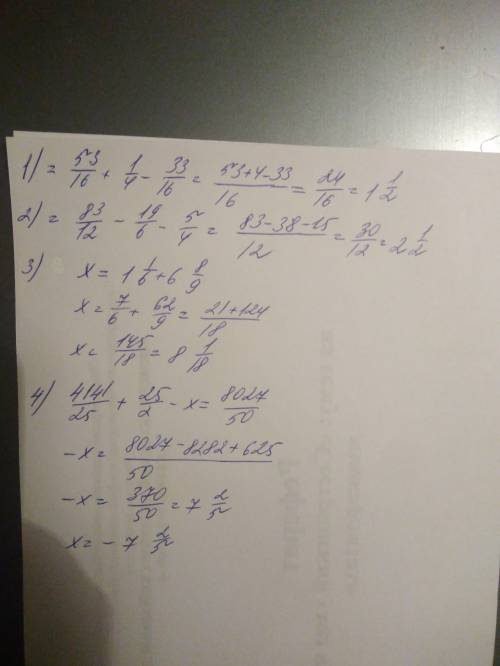 1) = 53/16 + 1/4 - 33/16 = 53+4-33/16 = 24/16 = 1 1/2
2) = 83/12 - 19/6 - 5/4 = 83-38-15/12 = 30/12 = 2 1/2
3) x = 1 1/6 + 6 8/9
x = 7/6 + 62/9 = 21+124/18
x = 145/18 = 8 1/18
4) 4141/25 + 25/2 - x = 8027/50
-x = 8027-8282+625/50
-x = 370/50 = 7 2/5
x = - 7 2/5